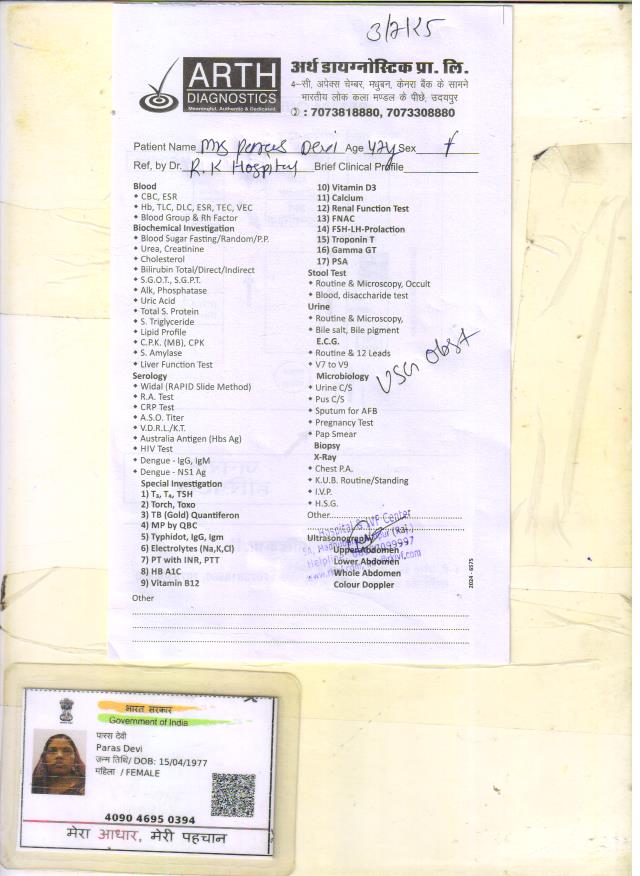 3/7/25
ARTH
DIAGNOSTICS
Meaningful, Authentic & Dedicated.
अर्थ डायग्नोस्टिक प्रा. लि.
4-सी, अपेक्स चेम्बर, मधुबन, केनरा बैंक के सामने
भारतीय लोक कला मण्डल के पीछे, उदयपुर
: 7073818880, 7073308880
Patient Name Mrs Paras Devi Age 42y Sex f
Ref, by Dr. R.K Hospital Brief Clinical Profile
Blood
CBC, ESR
Hb, TLC, DLC, ESR, TEC, VEC
Blood Group & Rh Factor
Biochemical Investigation
Blood Sugar Fasting/Random/P.P.
Urea, Creatinine
Cholesterol
Bilirubin Total/Direct/Indirect
S.G.O.T., S.G.P.T.
Alk, Phosphatase
Uric Acid
Total S. Protein
S. Triglyceride
Lipid Profile
C.P.K. (MB), CPK
S. Amylase
Liver Function Test
Serology
Widal (RAPID Slide Method)
R.A. Test
CRP Test
A.S.O. Titer
V.D.R.L./K.T.
Australia Antigen (Hbs Ag)
HIV Test
Dengue - IgG, IgM
Dengue - NS1 Ag
Special Investigation
1) T₃, T₄, TSH
2) Torch, Toxo
3) TB (Gold) Quantiferon
4) MP by QBC
5) Typhidot, IgG, Igm
6) Electrolytes (Na,K,Cl)
7) PT with INR, PTT
8) HB A1C
9) Vitamin B12
10) Vitamin D3
11) Calcium
12) Renal Function Test
13) FNAC
14) FSH-LH-Prolaction
15) Troponin T
16) Gamma GT
17) PSA
Stool Test
Routine & Microscopy, Occult
Blood, disaccharide test
Urine
Routine & Microscopy,
Bile salt, Bile pigment
E.C.G.
Routine & 12 Leads
V7 to V9
USG Obst
Microbiology
Urine C/S
Pus C/S
Sputum for AFB
Pregnancy Test
Pap Smear
Biopsy
X-Ray
Chest P.A.
K.U.B. Routine/Standing
I.V.P.
H.S.G.
Other
Hospital & IVF Center
Ultrasonography
Upper Abdomen
Lower Abdomen
Whole Abdomen
Colour Doppler
2024 - 6575
Other
भारत सरकार
Government of India
पारस देवी
Paras Devi
जन्म तिथि/ DOB: 15/04/1977
महिला / FEMALE
4090 4695 0394
मेरा आधार, मेरी पहचान